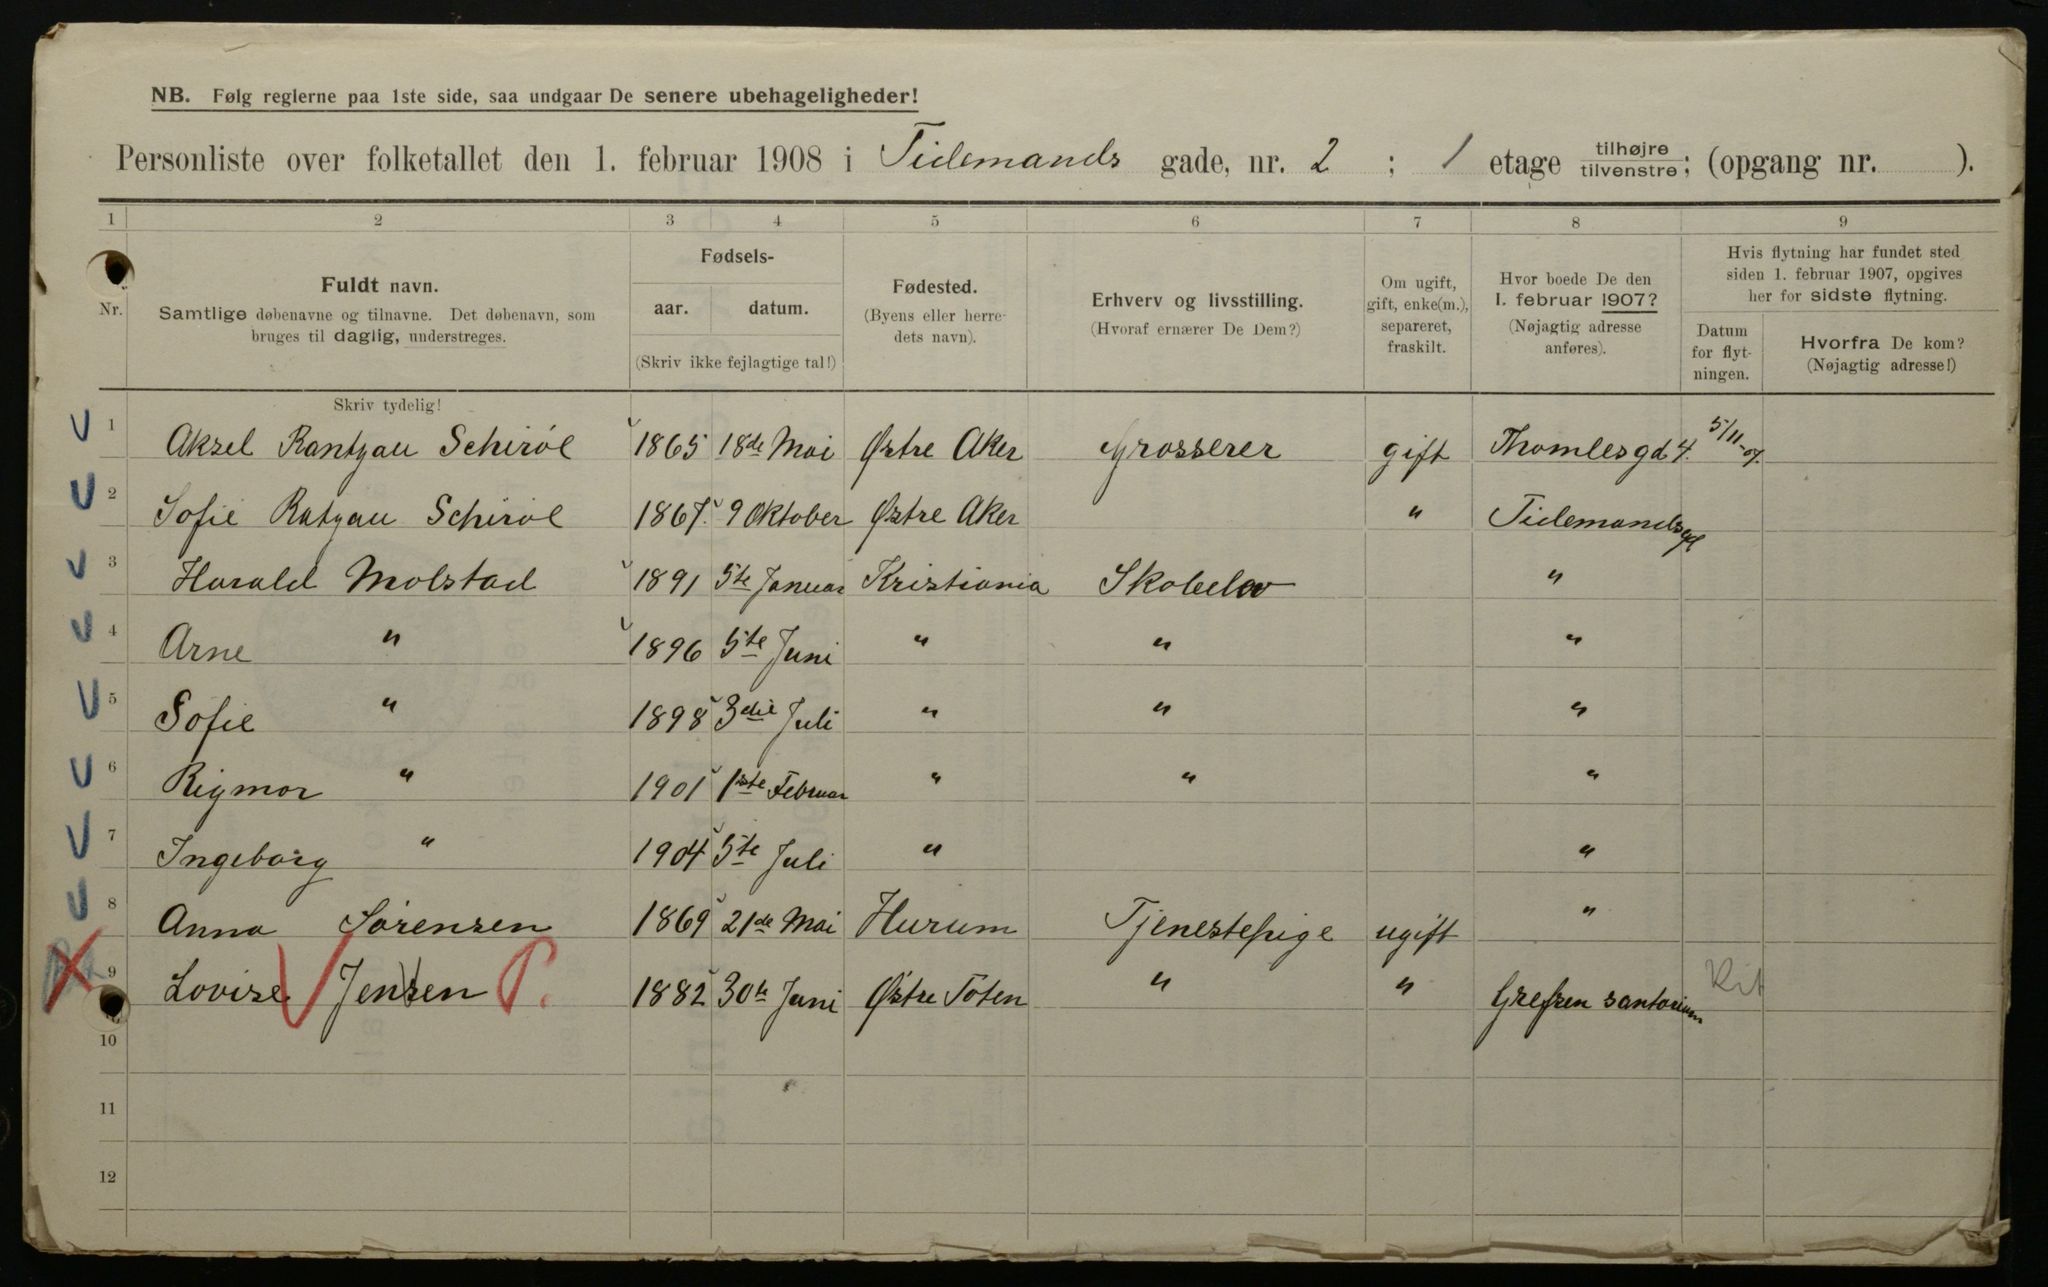 NB. Følg reglerne paa 1ste side, saa undgaar De senere ubehageligheder!
Personliste over folketallet den 1. februar 1908 i Tidemands gade, nr. 2 ; 1 etage tilhøjre tilvenstre; (opgang nr. ).
1 2 3 4 5 6 7 8 9
Nr.
Fuldt navn.
Samtlige døbenavne og tilnavne. Det døbenavn, som
bruges til daglig, understreges.
Skriv tydelig!
Fødsels-
aar. datum.
(Skriv ikke fejlagtige tal!)
Fødested.
(Byens eller herre-
dets navn).
Erhverv og livsstilling.
(Hvoraf ernærer De Dem?)
Om ugift,
gift, enke(m.),
separeret,
fraskilt.
Hvor boede De den
1. februar 1907?
(Nøjagtig adresse
anføres).
Hvis flytning har fundet sted
siden 1. februar 1907, opgives
her for sidste flytning.
Datum
for flyt-
ningen.
Hvorfra De kom?
(Nøjagtig adresse!)
1 Aksel Rantzau Schiröe 1865 18de Mai Østre Aker Grosserer gift Thomlesgd 4. 5/11-07.
2 Sofie Ratzau Schiröe 1867. 9 Oktober Østre Aker " Tidemandsgd
3 Harald Molstad 1891 5te Januar Kristiania Skoleelev "
4 Arne " 1896 5te Juni " " "
5 Sofie " 1898 3die Juli " " "
6 Rigmor " 1901 1ste Februar " " "
7 Ingeborg " 1904 5te Juli " "
8 Anna Sørensen 1869 21de Mai Hurum Tjenestepige ugift "
9 Lovise Jensen P. 1882 30te Juni Østre Toten " " Grefsen santorium
10
11
12